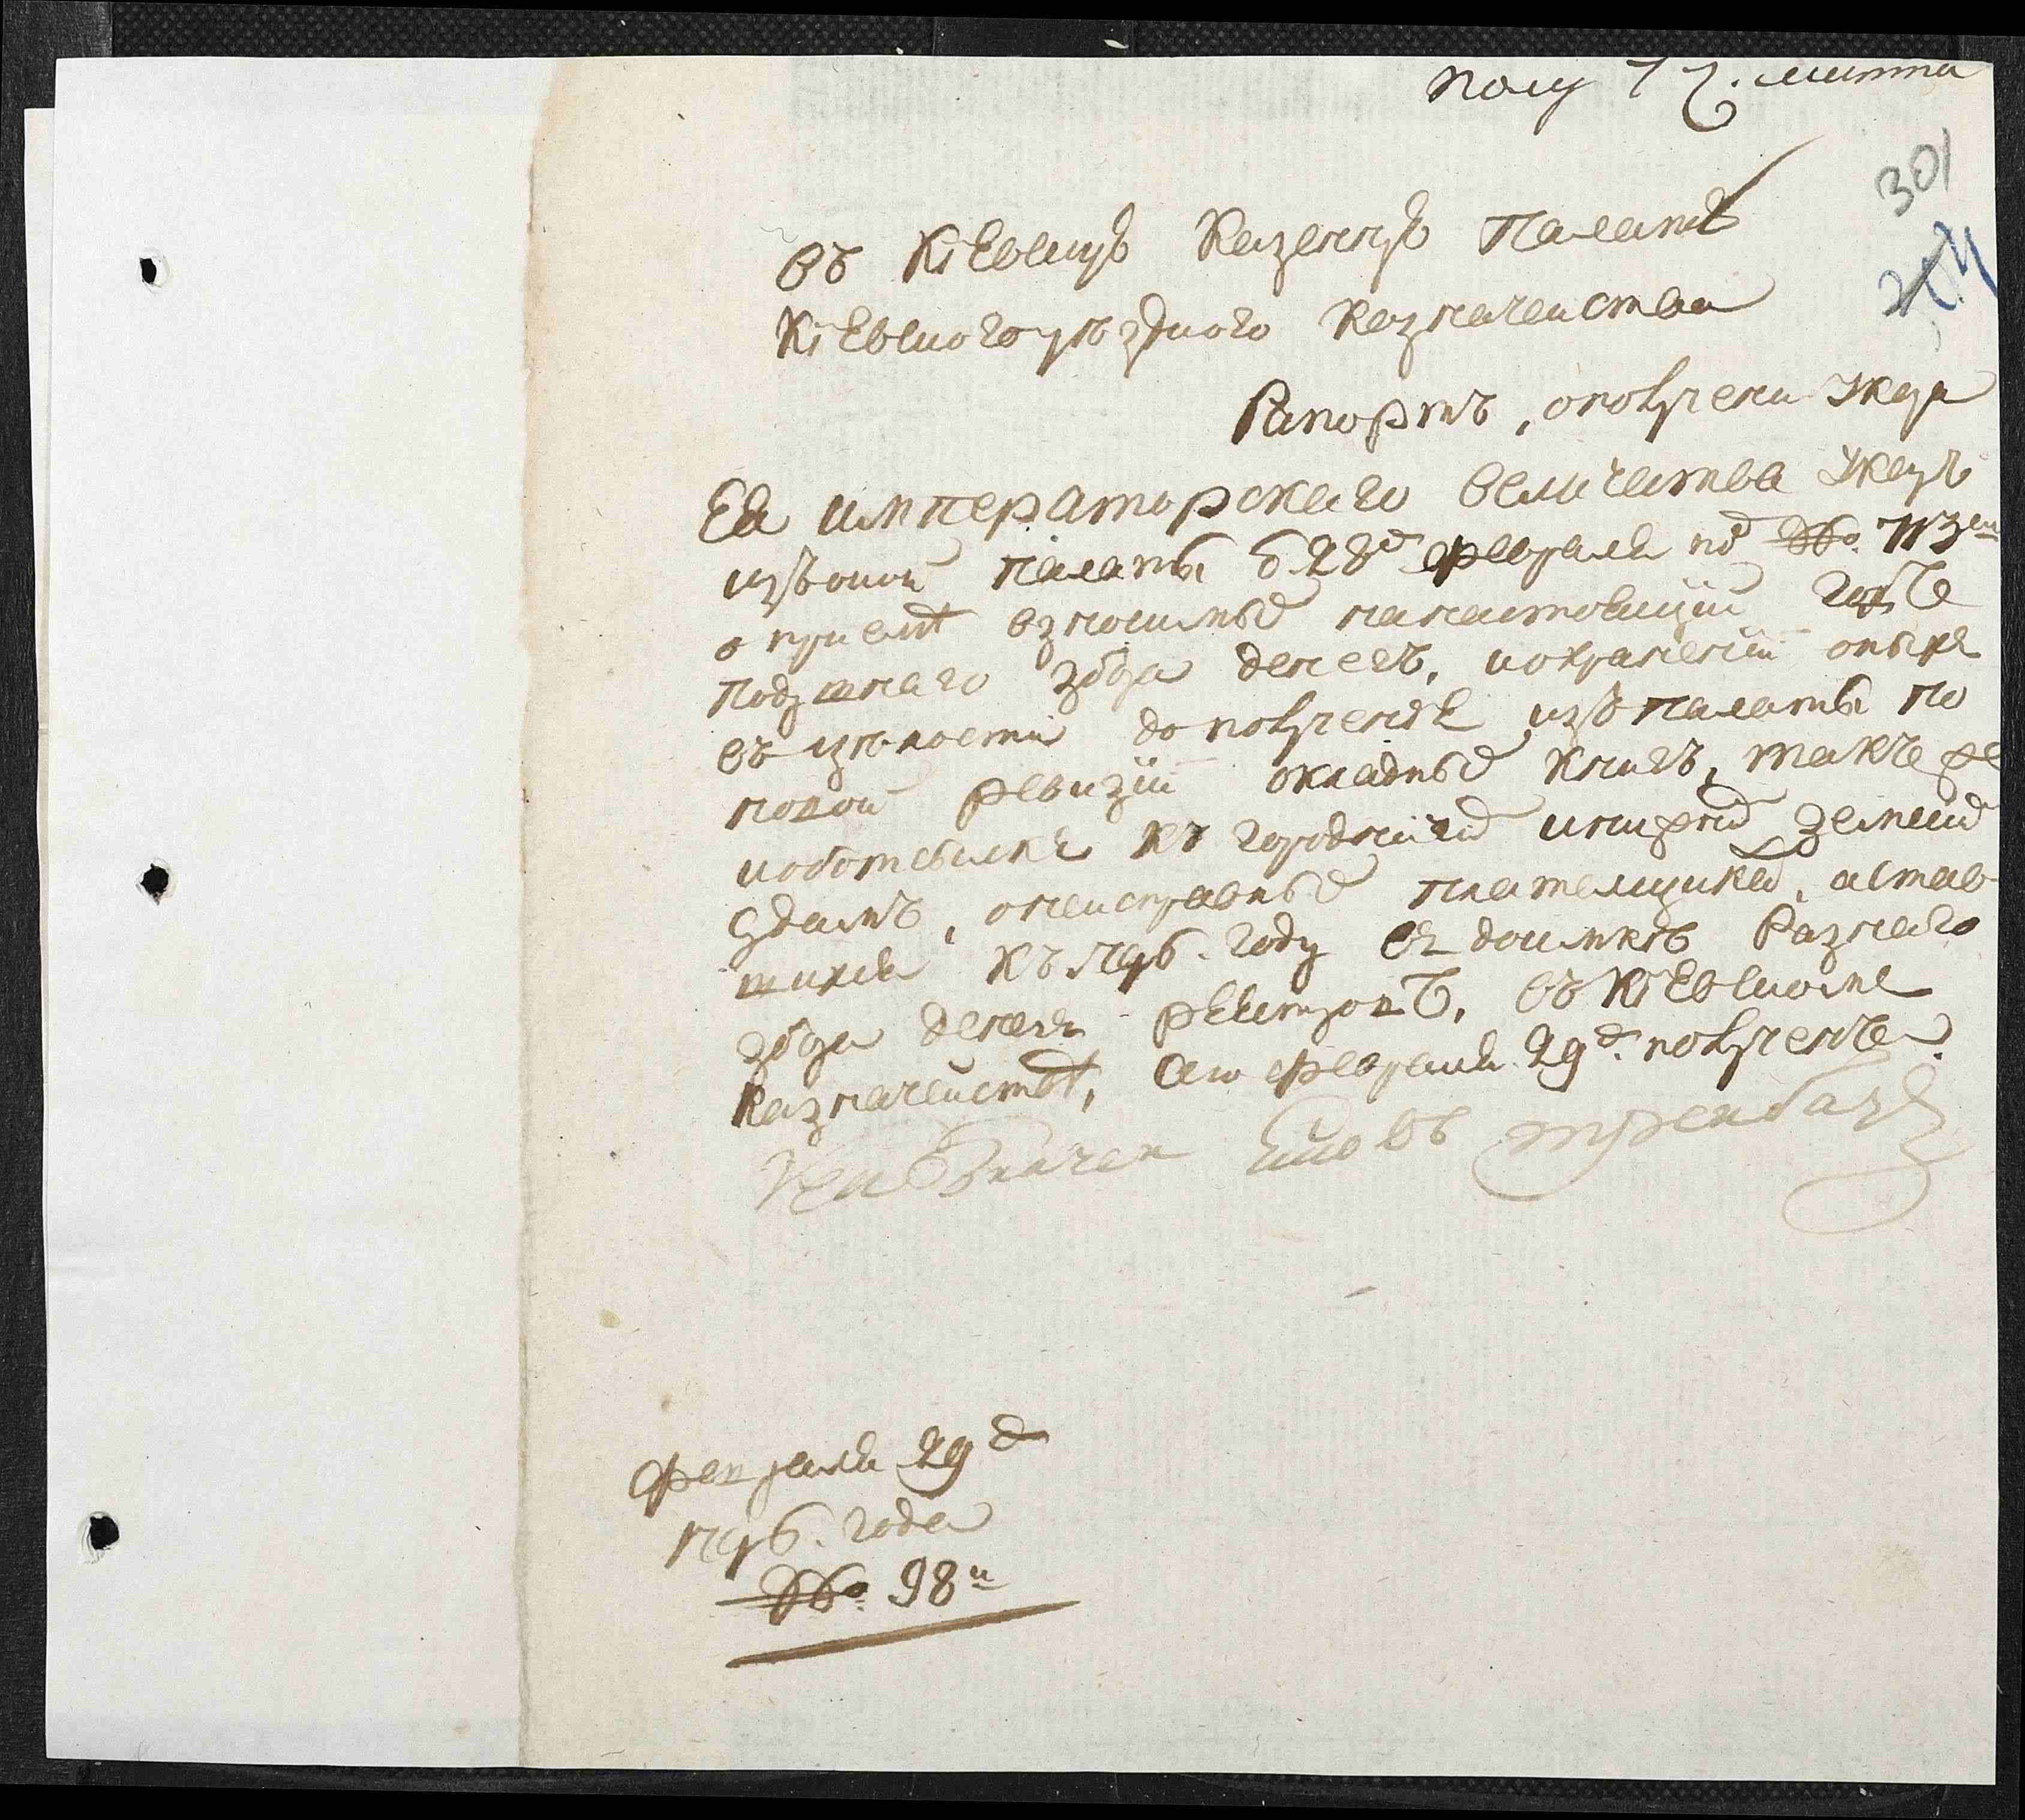 полу 7 г. марта
301
въ Кіевскую Казенную Палату
Кіевского уезdного казначейства
Рапортъ, о получени указа
Ея императорскаго величества указъ
изъ оной палаты от 28го февраля под № 713м
о приеме взносимых на настоящий годъ
подушнаго збора денегъ, и о хранении оныхъ
въ целости до получения изъ палаты по
новой ревизии окладных книгъ, также
и о отсылке къ городничим и нижним земским
судамъ, о неисправных плательщиках, а став
шихся къ 1796. году въ доимке разнаго
збора денегъ реестровъ, въ Кіевскомъ
казначействе, сего февраля 29го получено.
Казначей Трембачъ
Февраля 29го
1796. года
№ 98й